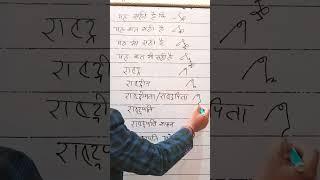 यह सही है कि
यह बात सही है
यह भी सही है
यह बात भी सही है
राष्ट्र
राष्ट्रीय
राष्ट्रपिता
राष्ट्रपति
राष्ट्रपति भवन
राष्ट्रपति